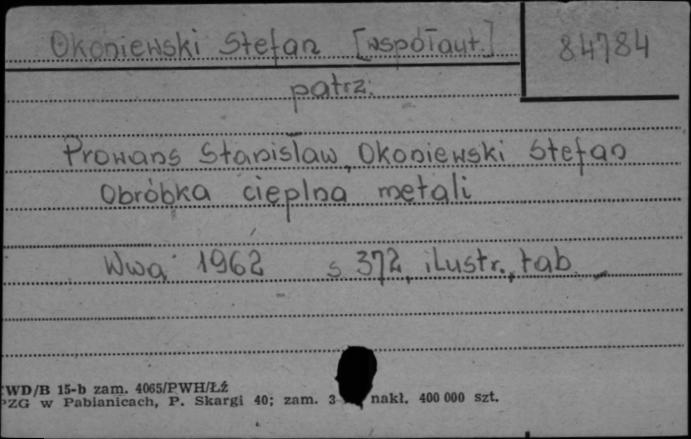 Okoniewski Stefan [współaut.] 84784
patrz:
Prowans Stanisław, Okoniewski Stefan
Obróbka cieplna metali
Wwa 1962 s. 372, ilustr., tab.
WD/B 15-b zam. 4065/PWH/Łź
PZG w Pabianicach, P. Skargi 40; zam. 3 nakł. 400 000 szt.